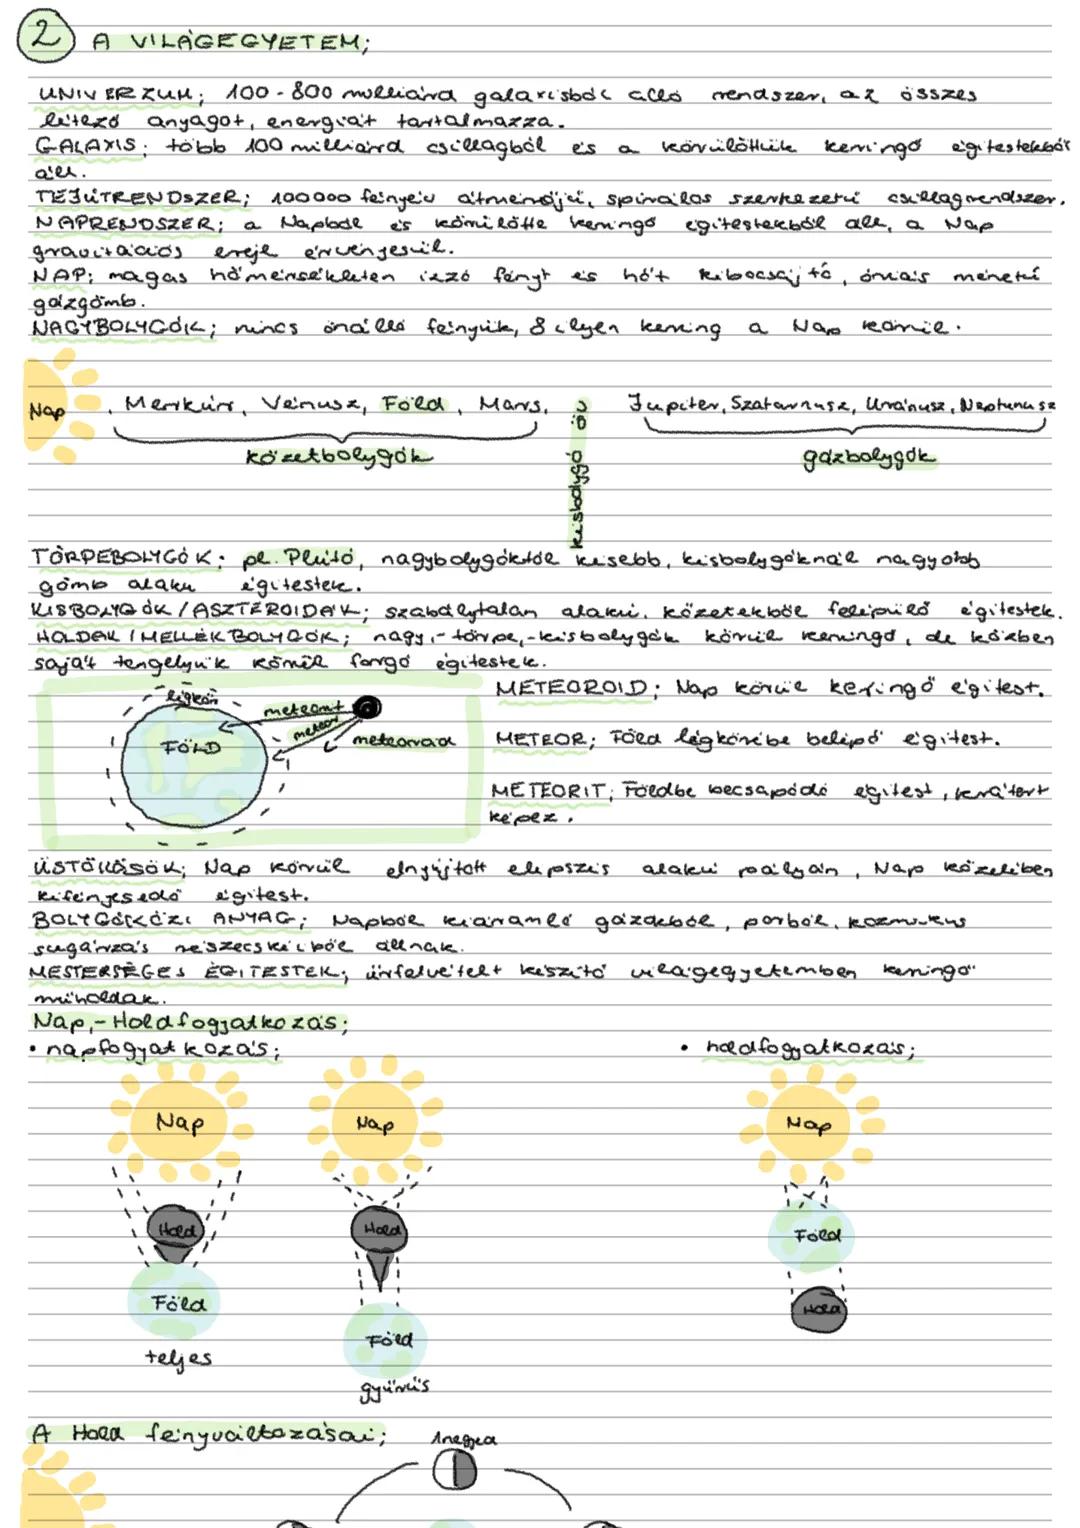 2 A VILÁGEGYETEM;
UNIVERZUM; 100-800 milliárd galaxisból álló rendszer, az összes
létező anyagot, energiát tartalmazza.
GALAXIS; több 100 milliárd csillagból és a körülöttük keringő égitestekből
áll.
TEJÚTRENDSZER; 100000 fényév átmérőjű, spirálos szerkezetű csillagrendszer.
NAPRENDSZER; a Napból és körülötte keringő égitestekből áll, a Nap
gravitációs ereje érvényesül.
NAP; magas hőmérsékleten izzó fényt és hőt kibocsájtó, óriás méretű
gázgömb.
NAGYBOLYGÓK; nincs önálló fényük, 8 ilyen kering a Nap körül.
Nap, Merkúr, Vénusz, Föld, Mars, kisbolygó öv Jupiter, Szaturnusz, Uránusz, Neptunusz
kőzetbolygók gázbolygók
TÖRPEBOLYGÓK; pl. Plútó, nagybolygóktól kisebb, kisbolygóknál nagyobb
gömb alakú égitestek.
KISBOLYGÓK/ASZTEROIDÁK; szabálytalan alakú, kőzetekből felépülő égitestek.
HOLDAK/MELLÉKBOLYGÓK; nagy,-törpe,-kisbolygók körül keringő, de közben
saját tengelyük körül forgó égitestek.
légkör
meteorit
meteor
meteoroid
FÖLD
METEOROID; Nap körül keringő égitest.
METEOR; Föld légkörébe belépő égitest.
METEORIT; Földbe becsapódó égitest, krátert
képez.
ÜSTÖKÖSÖK; Nap körül elnyújtott elipszis alakú pályán, Nap közelében
kifényesedő égitest.
BOLYGÓKÖZI ANYAG; Napból kiáramló gázokból, porból, kozmikus
sugárzás részecskéiből állnak.
MESTERSÉGES ÉGITESTEK; űrfelvételt készítő világegyetemben keringő
műholdak.
Nap,-Holdfogyatkozás;
• napfogyatkozás; • holdfogyatkozás;
Nap Nap Nap
Hold Hold Föld
Föld Föld Hold
teljes
gyűrűs
A Hold fényváltozásai; 1negyed